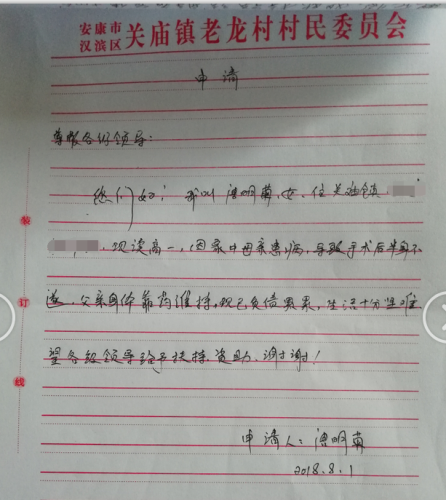 安康市
汉滨区 关庙镇老龙村村民委员会
申请
尊敬各级领导:
您们好! 我叫唐明菊,女,住关庙镇
,现读高一,因家中母亲患病,导致手术后半身不
遂,父亲身体靠药维持,现已负债累累,生活十分困难
望各级领导给予扶持、资助、谢谢!
申请人:唐明菊
2018.8.1
装
订
线